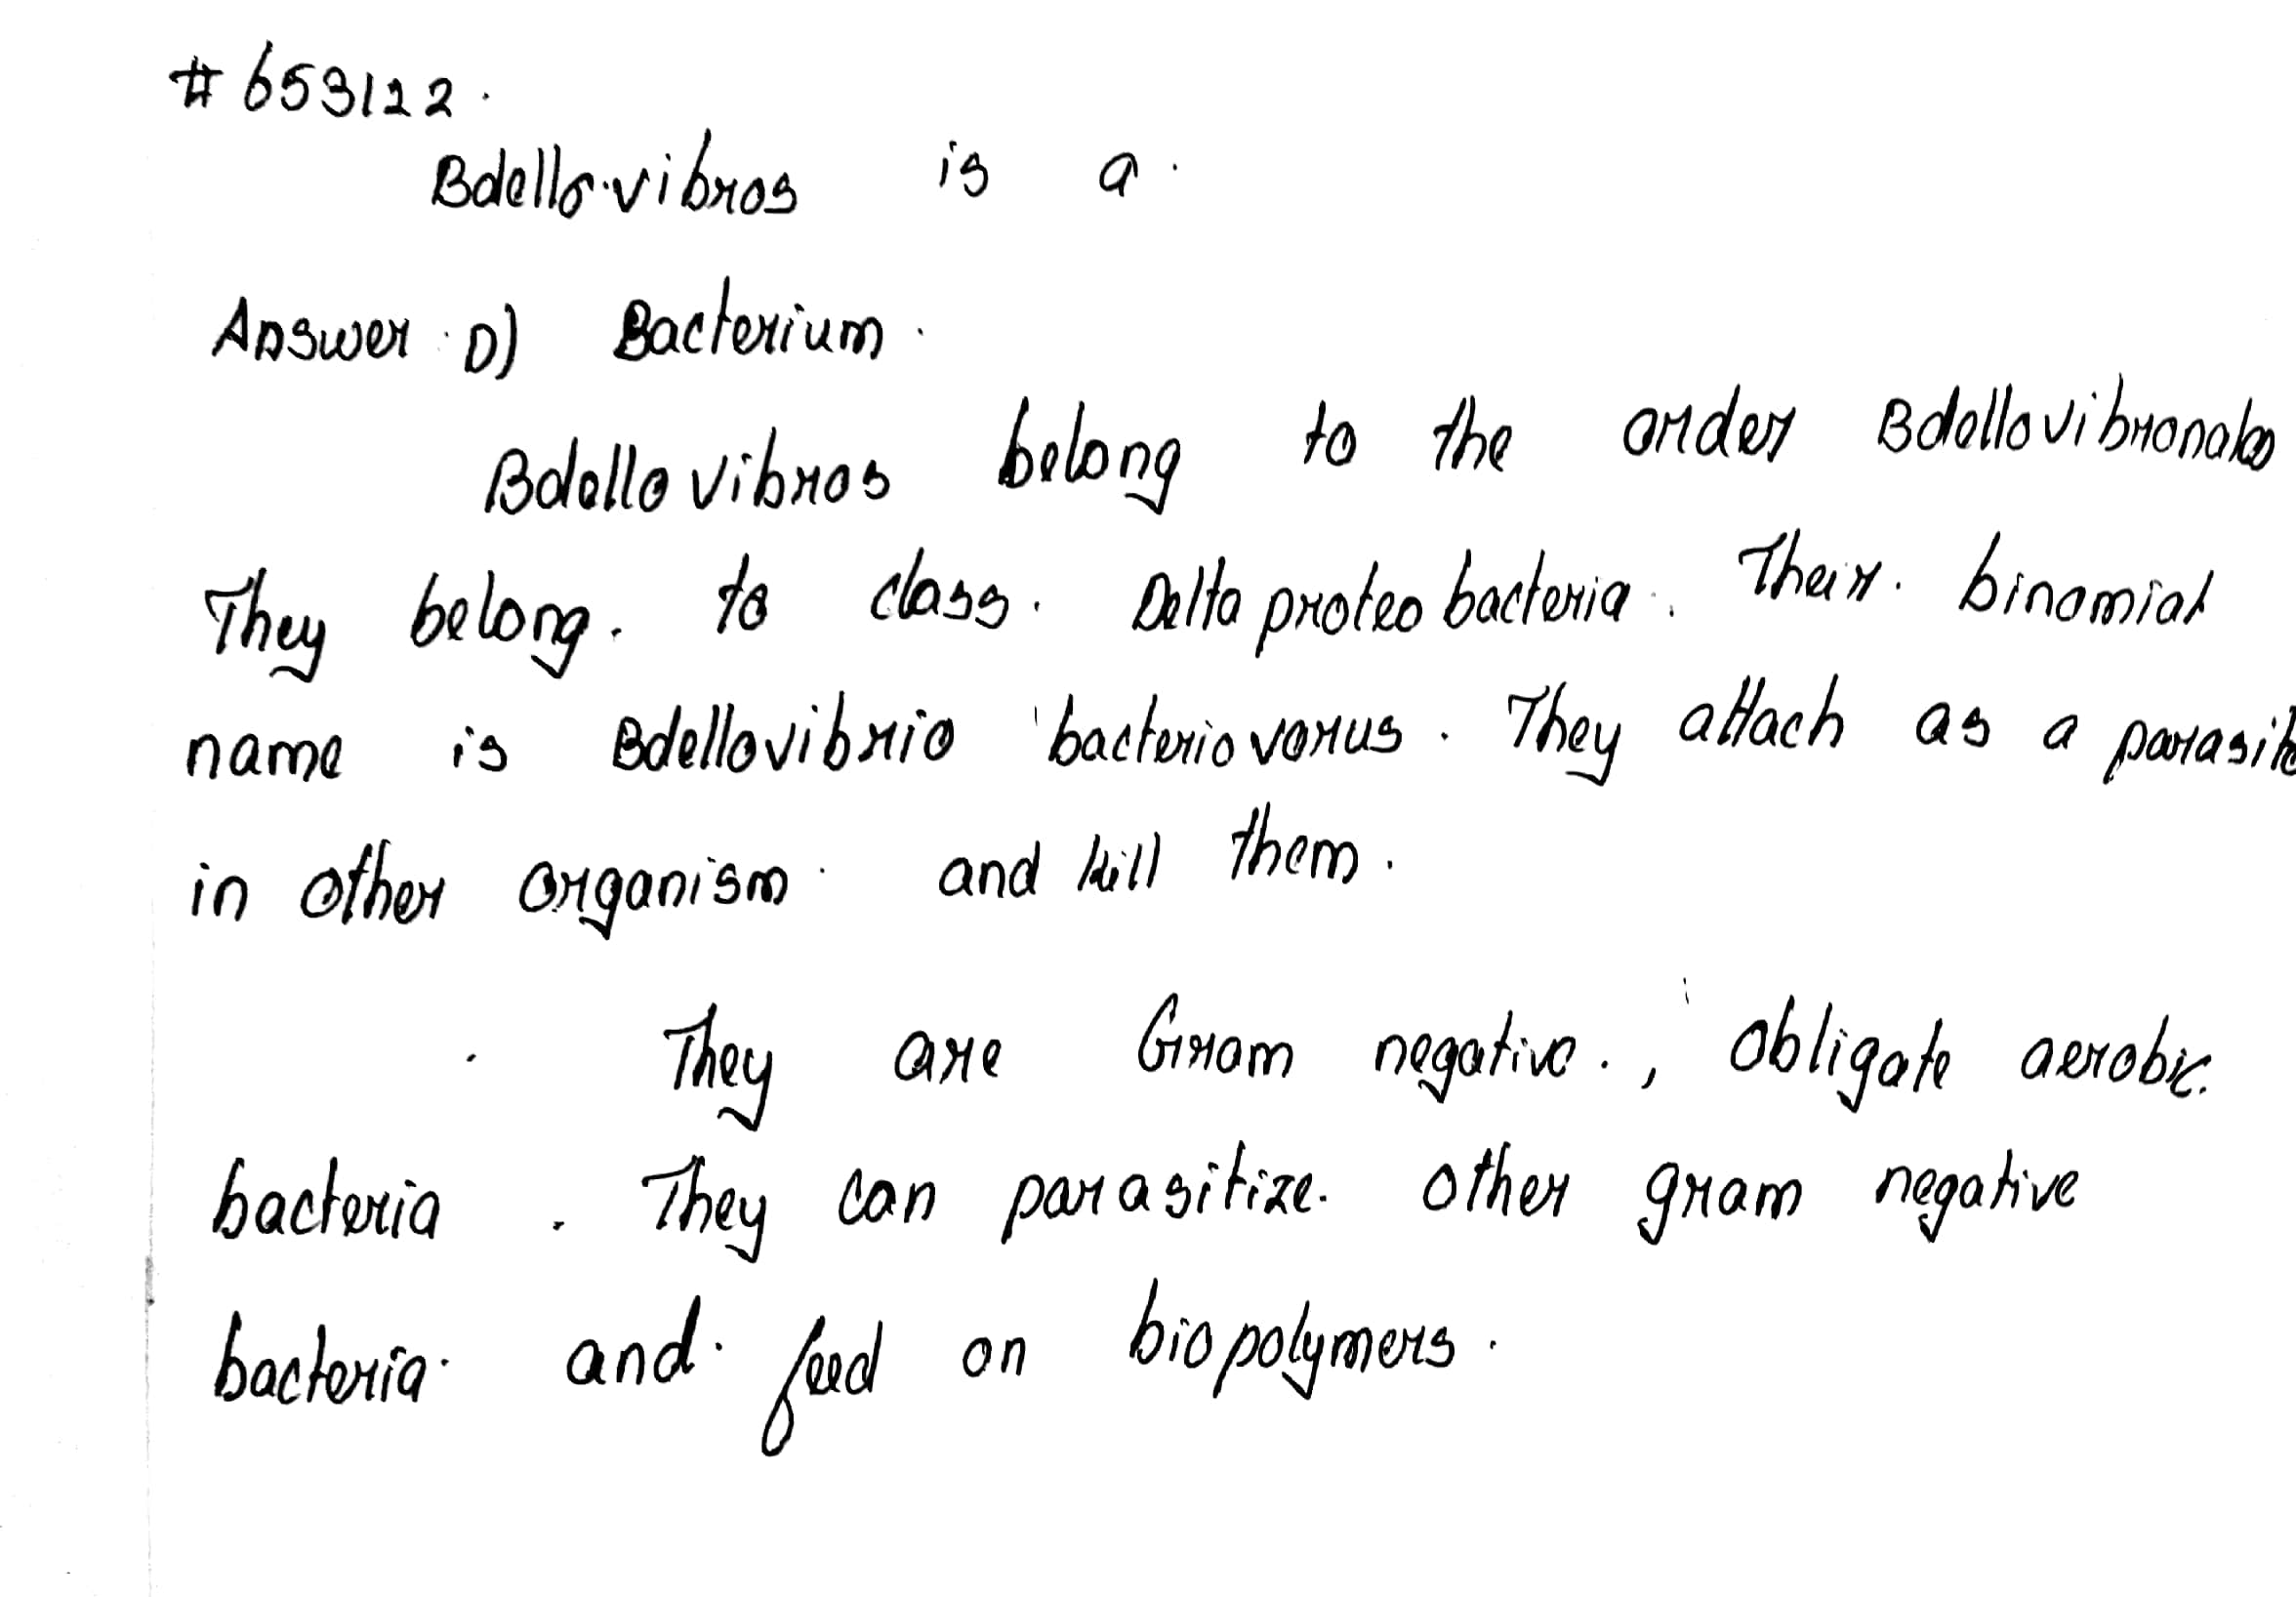 #653122.
Bdello.vibros is a.
Answer D) Bacterium.
Bdello vibros belong to the order Bdellovibronales
They belong. to class. Delta proteo bacteria. Their. binomial
name is Bdellovibrio bacteriovorus. They attach as a parasite
in other organism. and kill them.
They are Gram negative., Obligate aerobic.
bacteria. They can parasitize. other gram negative
bacteria. and. feed on biopolymers.